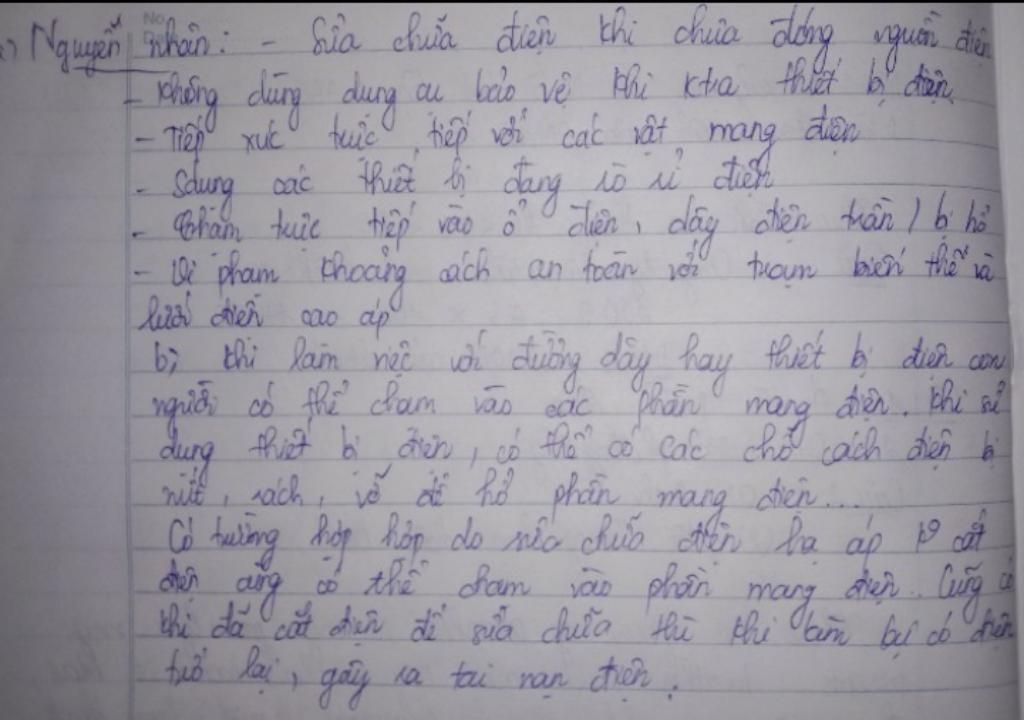 Nguyễn nhân: - Sửa chữa điện khi chưa đóng nguồn điện
- Không dùng dung cu bảo vệ khi ktra thiết bị điện
- Tiếp xúc trực tiếp với các vật mang điện
- Sdung các thiết bị đang rò rỉ điện
- Chạm trực tiếp vào ổ điện, dây điện trần / bị hở
- Vi pham khoảng cách an toàn với trạm biến thế và
lưới điện cao áp
b, Khi làm việc với đường dây hay thiết bị điện con
người có thể chạm vào các phần mang điện. Khi sử
dung thiết bị điện, có thể có các chỗ cách điện bị
nứt, rách, vỡ để hở phần mang điện...
Có trường hợp hợp do sửa chữa điện hạ áp ko cắt
điện cũng có thể chạm vào phần mang điện.. Cũng có
khi đã cắt điện để sửa chữa thì khi làm bị có điện
trở lại, gây ra tai nạn điện.